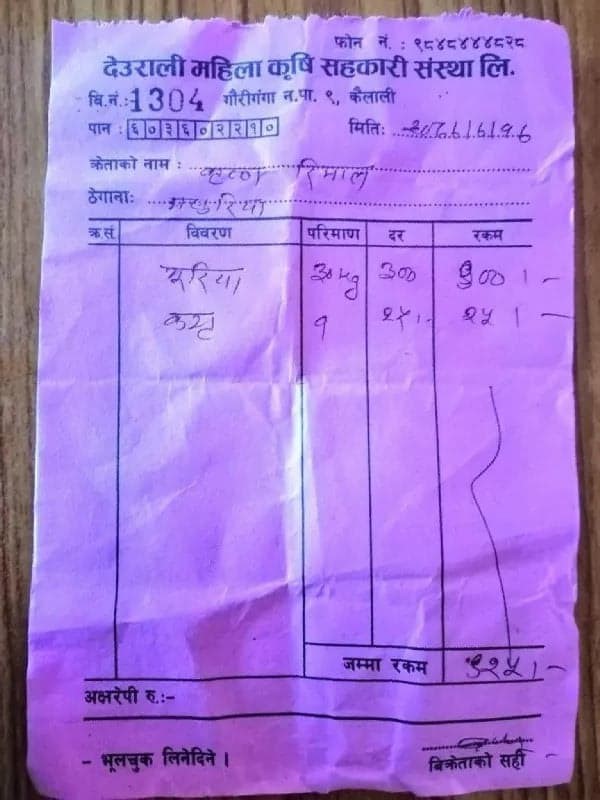 फोन नं. : ९८४८४४४८२८
देउराली महिला कृषि सहकारी संस्था लि.
बि.नं.: 1304 गौरीगंगा न.पा. ९, कैलाली
पान : ६०३६०२२१० मितिः
क्रेताको नाम : कृष्ण रिमाल
ठेगानाः
क्र.सं. विवरण परिमाण दर रकम
युरिया 300 ९००।-
१ २५।- २५।-
जम्मा रकम ९२५।-
अक्षरेपी रु.:-
- भूलचुक लिनेदिने ।
बिक्रेताको सही